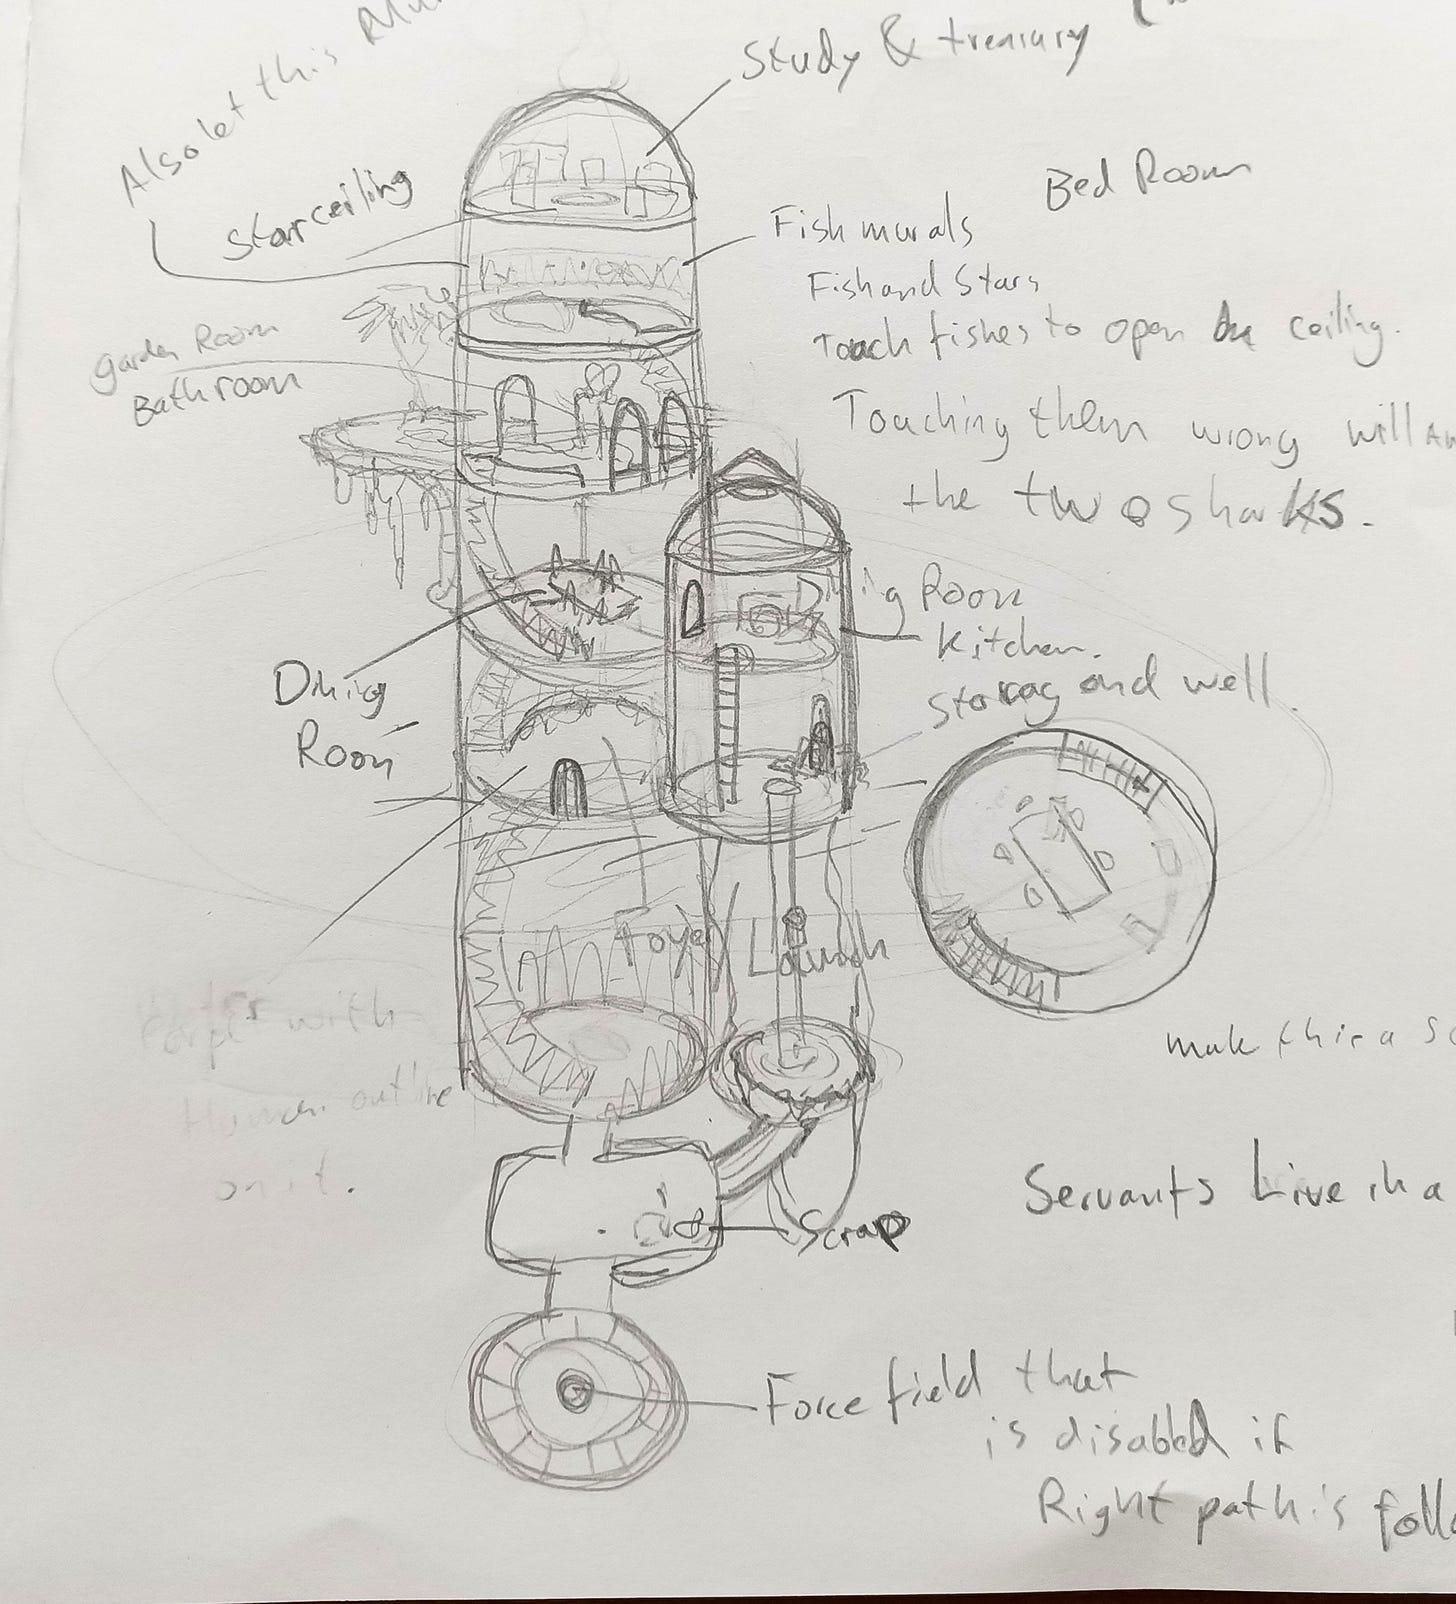 Also let this
Study & treasury
Star ceiling
Bed Room
Fish murals
Fish and Stars
Touch fishes to open the ceiling.
Touching them wrong will
the two sharks.
Garden Room
Bathroom
Dining Room
Kitchen.
Storag and well.
Dining
Room
Foyer
Launch
with
Human outline
on it.
make this a
Servants Live in a
Scrap
Force field that
is disabled if
Right path is